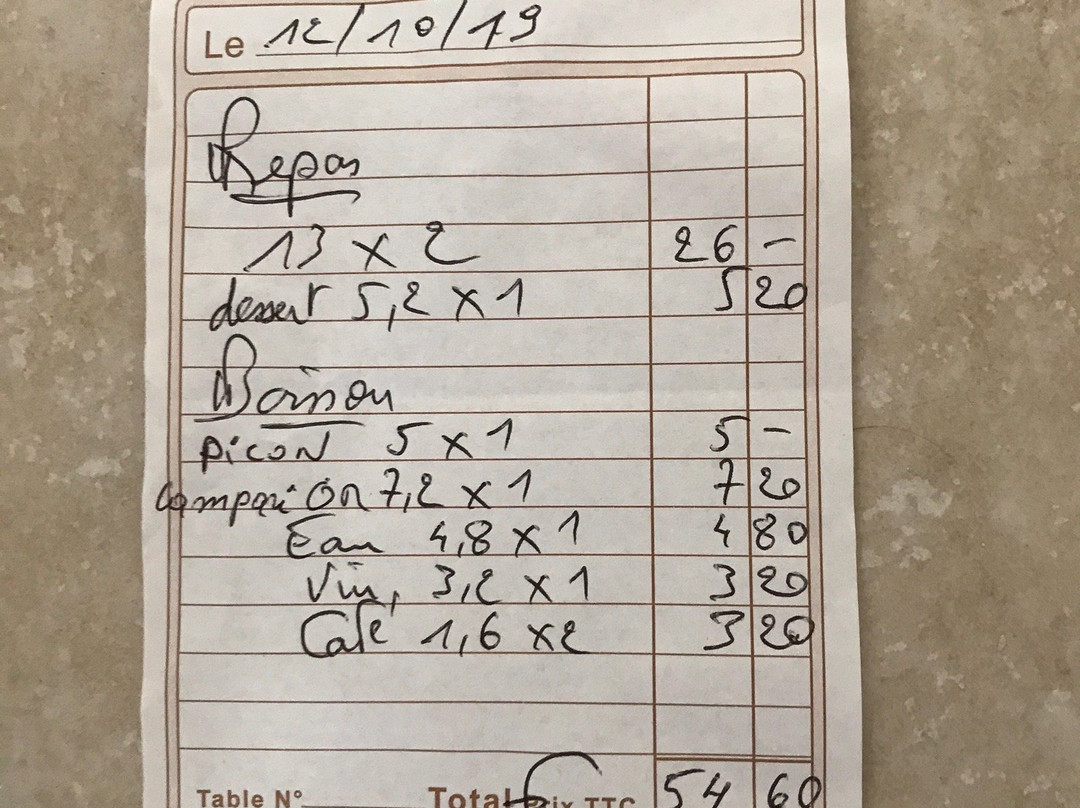 Le 12/10/19
Repas
13 x 2 26 -
dessert 5,2 x 1 5 20
Boisson
Picon 5 x 1 5 -
Campari On 7,2 x 1 7 20
Eau 4,8 x 1 4 80
Vin, 3,2 x 1 3 20
Café 1,6 x 2 3 20
Table N° Total Prix TTC 54 60